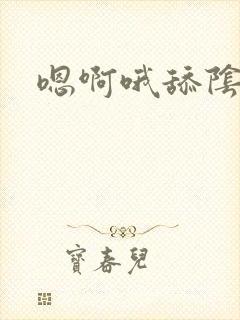 嗯啊哦舔陰
寶春兒